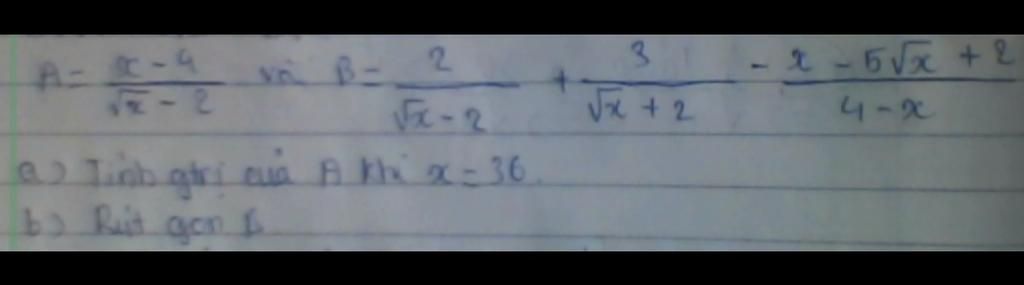 A = \frac{x - 4}{\sqrt{x} - 2} và B = \frac{2}{\sqrt{x} - 2} + \frac{3}{\sqrt{x} + 2} - \frac{x - 5\sqrt{x} + 2}{4 - x}
a) Tính gtrị của A khi x = 36.
b) Rút gọn B